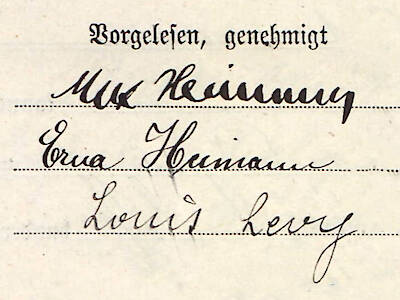 Vorgelesen, genehmigt
Max Heimann
Erna Heimann
Louis Levy